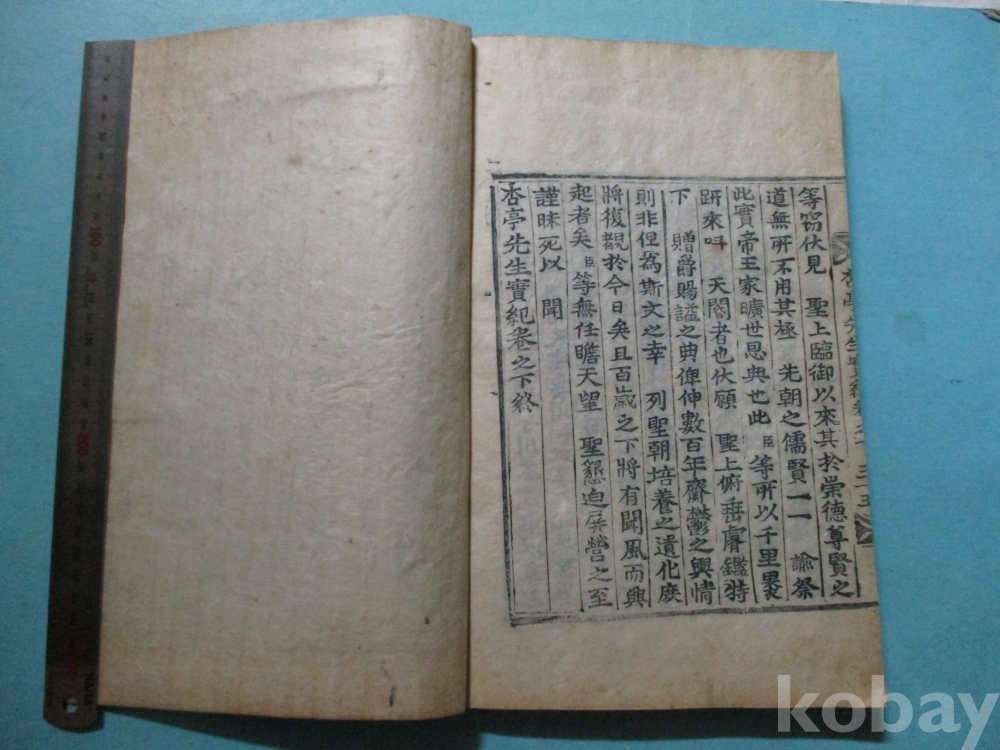 等窃伏見 聖上臨御以來其於崇德尊賢之
道無所不用其極 先朝之儒賢一一 諭祭
此實帝王家曠世恩典也此 臣等所以千里裹
趼來呌 天閽者也伏願 聖上俯垂睿鑑特
下 贈爵賜謚之典俾伸數百年齎鬱之輿情
則非但為斯文之幸 列聖朝培養之遺化庶
將復覩於今日矣且百歲之下將有聞風而興
起者矣 臣等無任瞻天望 聖懇迫屏營之至
謹昧死以 聞
杏亭先生實紀卷之下終
杏亭先生實紀卷之下 三十五
kobay